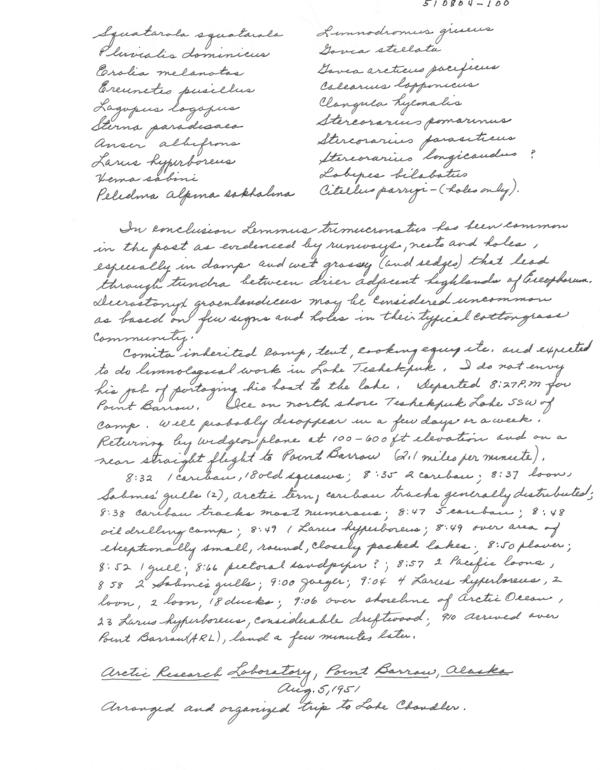 510804-100
Squatarola squatarola
Pluvialis dominicus
Erolia melanotas
Ereunetes pusillus
Lagopus lagopus
Sterna paradisaea
Anser albifrons
Larus hyperboreus
Xema sabini
Pelidma alpina sakhalina
Limnodromus griseus
Gavia stellata
Gavia arcticus pacificus
Calcarius lapponicus
Clangula hyemalis
Stercorarius pomarinus
Stercorarius parasiticus
Stercorarius longicaudus ?
Lobipes bilobatus
Citellus parryi-(holes only).
In conclusion Lemmus trimucronatus has been common
in the past as evidenced by runways, nests and holes,
especially in damp and wet grassy (and sedges) that lead
through tundra between drier adjacent highlands of Eriophorum.
Dicrostonyx groenlandicus may be considered uncommon
as based on few signs and holes in their typical cottongrass
community.
Comita inherited camp, tent, cooking equip etc. and expected
to do limnological work in Lake Teshekpuk. I do not envy
his job of portaging his boat to the lake. Departed 8:27 P.M for
Point Barrow. Ice on north shore Teshekpuk Lake SSW of
camp. Will probably disappear in a few days or a week.
Returning by widgeon plane at 100-600 ft elevation and on a
near straight flight to Point Barrow (2.1 miles per minute).
8:32 1 caribou, 18 old squaws; 8:35 2 caribou; 8:37 loon,
Sabines' gulls (2), arctic tern; caribou tracks generally distributed;
8:38 caribou tracks most numerous; 8:47 5 caribou; 8:48
oil drilling camp; 8:49 1 Larus hyperboreus; 8:49 over area of
exceptionally small, round, closely packed lakes; 8:50 plover;
8:52 1 gull; 8:66 pectoral sandpiper ?; 8:57 2 Pacific loons,
8 58 2 Sabines gulls; 9:00 jaeger; 9:04 4 Larus hyperboreus, 2
loon, 2 loon, 18 ducks; 9:06 over shoreline of Arctic Ocean,
23 Larus hyperboreus, considerable driftwood; 910 arrived over
Point Barrow (ARL), land a few minutes later.
Arctic Research Laboratory, Point Barrow, Alaska
Aug. 5, 1951
Arranged and organized trip to Lake Chandler.